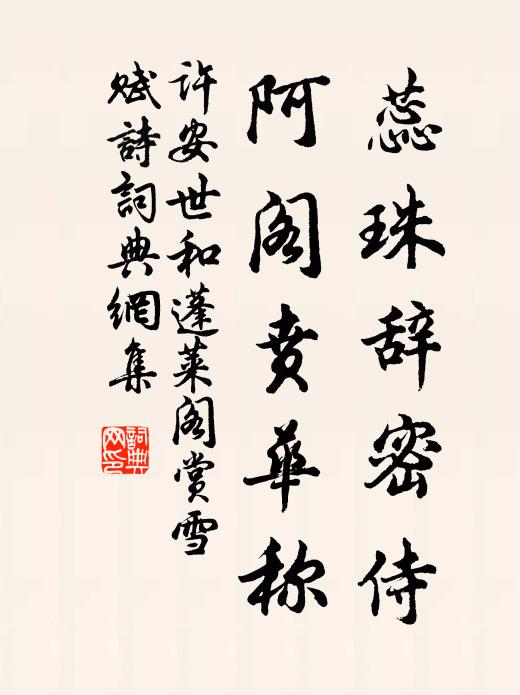 蕊珠辞密侍
阿阁贲华称
许安世和蓬莱阁赏雪
赋詩詞典網集
詞典網印